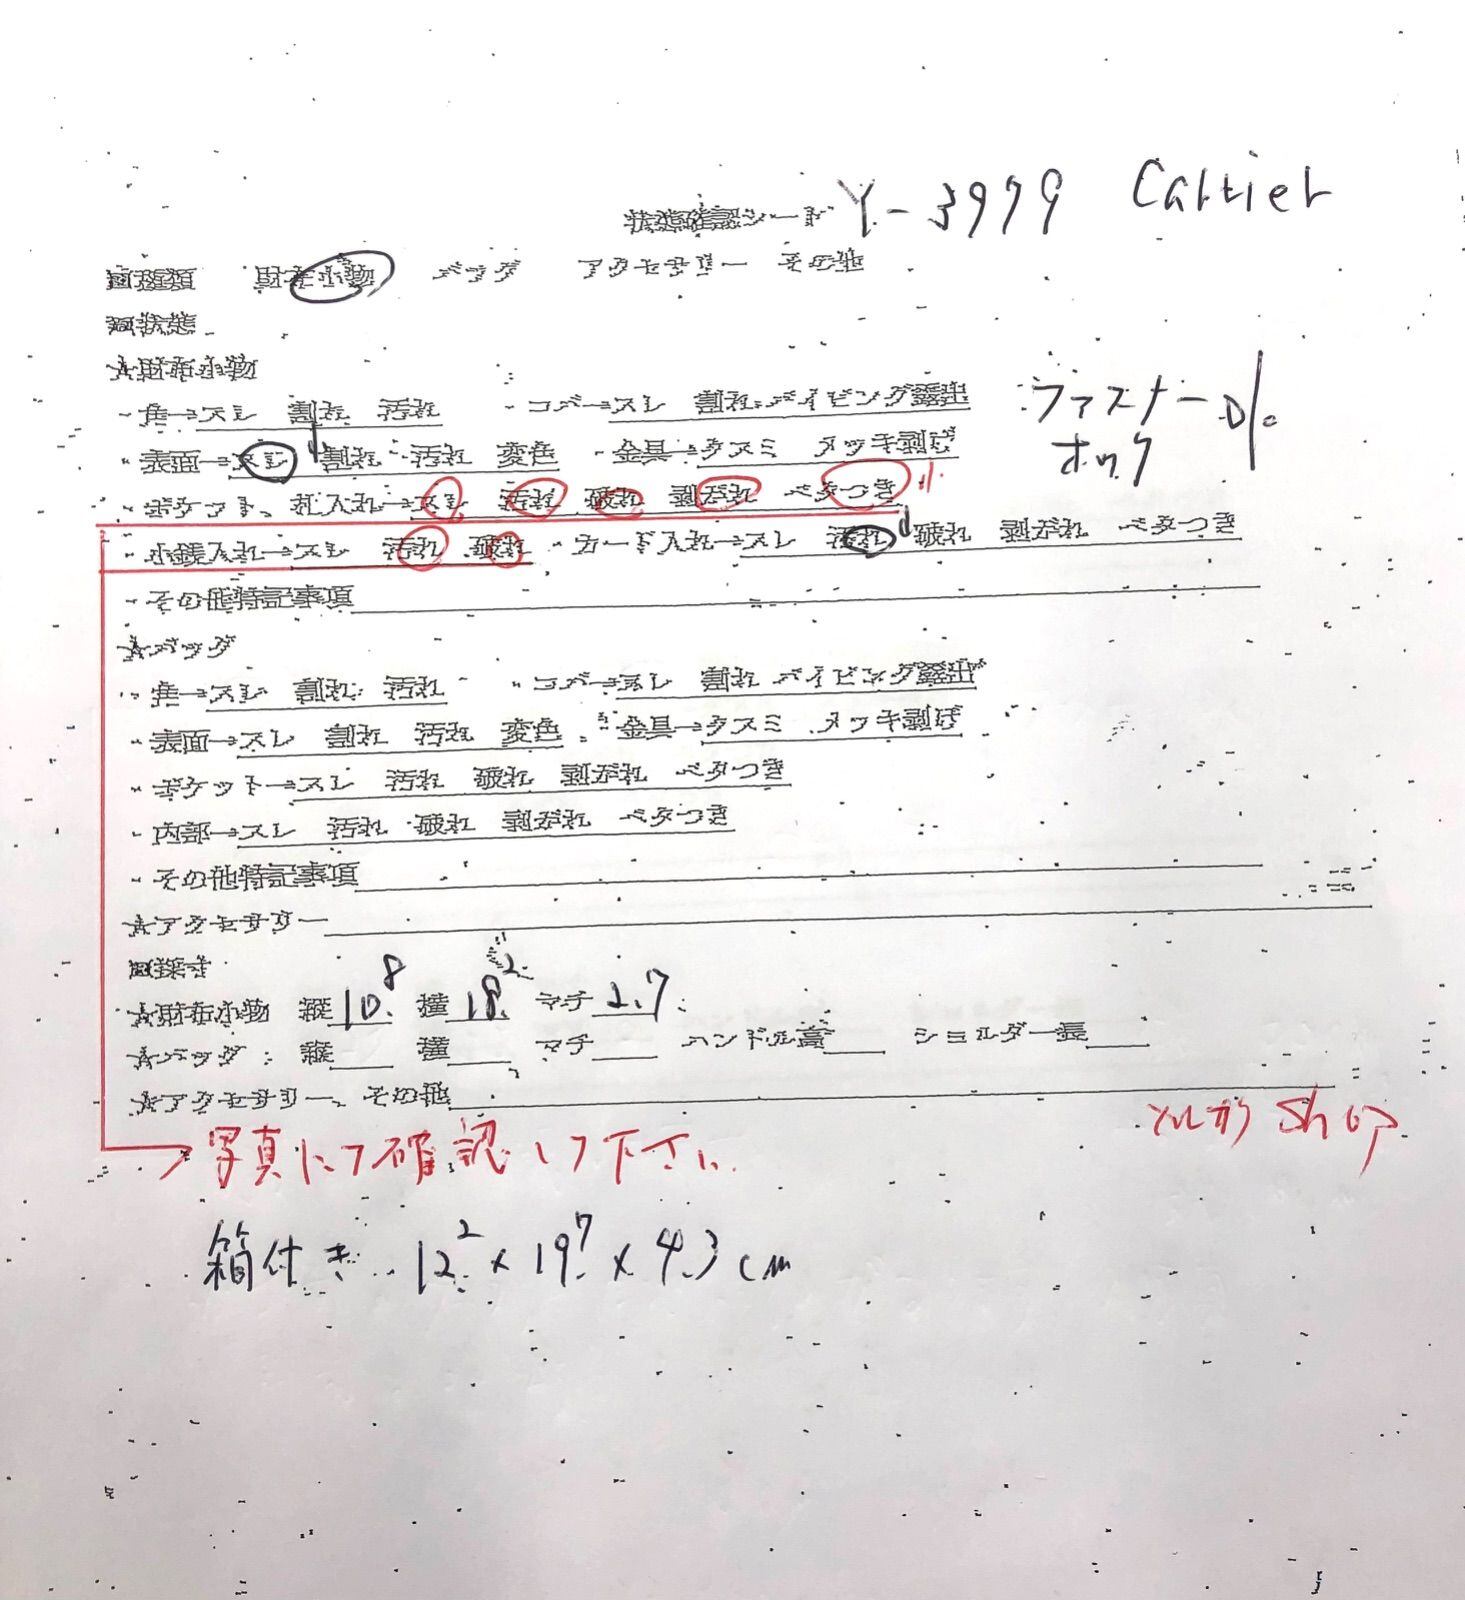 状態確認シート Y-3979 Cartier
□種類 財布小物 バッグ アクセサリー その他
□状態
☆財布小物
・角→スレ 割れ 汚れ ・コバ→スレ 割れ パイピング露出
ファスナー
ホック
・表面→スレ 割れ 汚れ 変色 ・金具→クスミ メッキ剥げ
・ポケット、札入れ→スレ 汚れ 破れ 剥がれ ベタつき
・小銭入れ→スレ 汚れ 破れ ・カード入れ→スレ 汚れ 破れ 剥がれ ベタつき
・その他特記事項
☆バッグ
・角→スレ 割れ 汚れ ・コバ→スレ 割れ パイピング露出
・表面→スレ 割れ 汚れ 変色 ・金具→クスミ メッキ剥げ
・ポケット→スレ 汚れ 破れ 剥がれ ベタつき
・内部→スレ 汚れ 破れ 剥がれ ベタつき
・その他特記事項
☆アクセサリー
□採寸
☆財布小物 縦 10.8 横 18.2 マチ 2.7
☆バッグ: 縦 横 マチ ハンドル高 ショルダー長
☆アクセサリー、その他
shop
写真にて確認して下さい
箱付き 12.2 × 19.7 × 4.3 cm